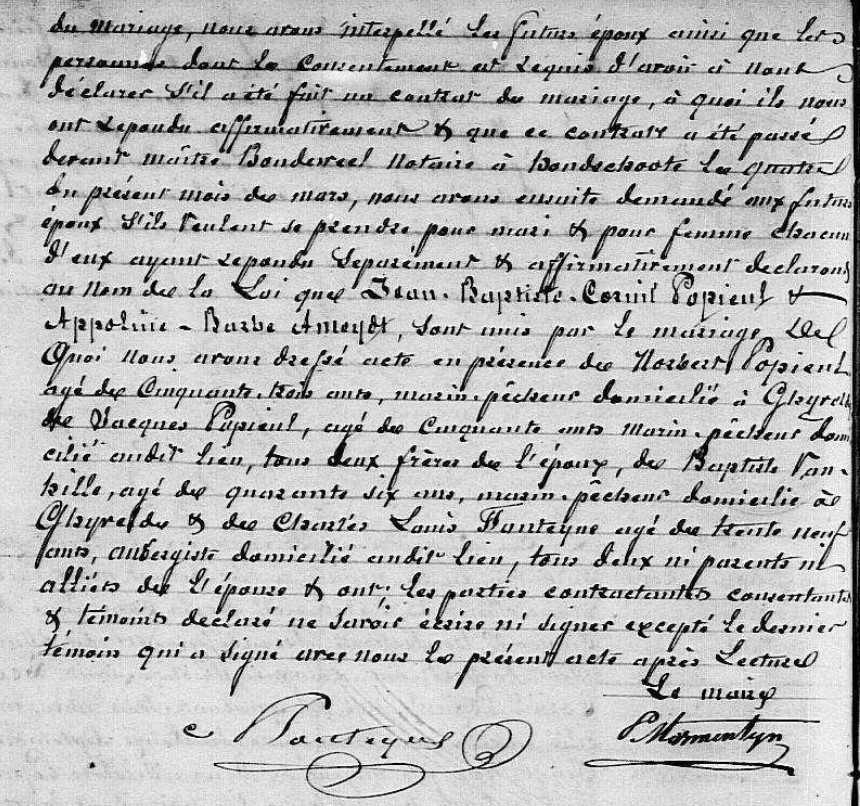 du mariage, nous avons interpellé les futurs époux ainsi que les
personnes dont le consentement est requis d'avoir à nous
déclarer s'il a été fait un contrat de mariage, à quoi ils nous
ont repondu affirmativement & que ce contrat a été passé
devant maître Bondeweel Notaire à hondschoote le quatre
du présent mois de mars, nous avons ensuite demandé aux futurs
époux s'ils veulent se prendre pour mari & pour femme chacun
d'eux ayant repondu separément & affirmativement declarons
au nom de la Loi que Jean-Baptiste-Cornil Popieul &
Appoline-Barbe Ameydt, sont unis par le mariage, De
Quoi nous avons dressé acte en présence de Norbert Popieul
agé de Cinquante-trois ans, marin-pêcheur domicilié à Ghyvelde
de Jacques Popieul, agé de Cinquante ans marin-pêcheur domi
cilié audit lieu, tous deux frères de l'époux, de Baptiste Van-
hille, agé de quarante six ans, marin-pêcheur domicilié à
Ghyvelde & de Charles Louis Fauteyne agé de trente neuf
ans, aubergiste domicilié audit lieu, tous deux ni parents ni
alliés de l'épouse & ont: les parties contractantes consentants
& témoins declaré ne savoir écrire ni signer excepté le dernier
témoin qui a signé avec nous le présent acte après Lecture
Le maire
c Fauteyne